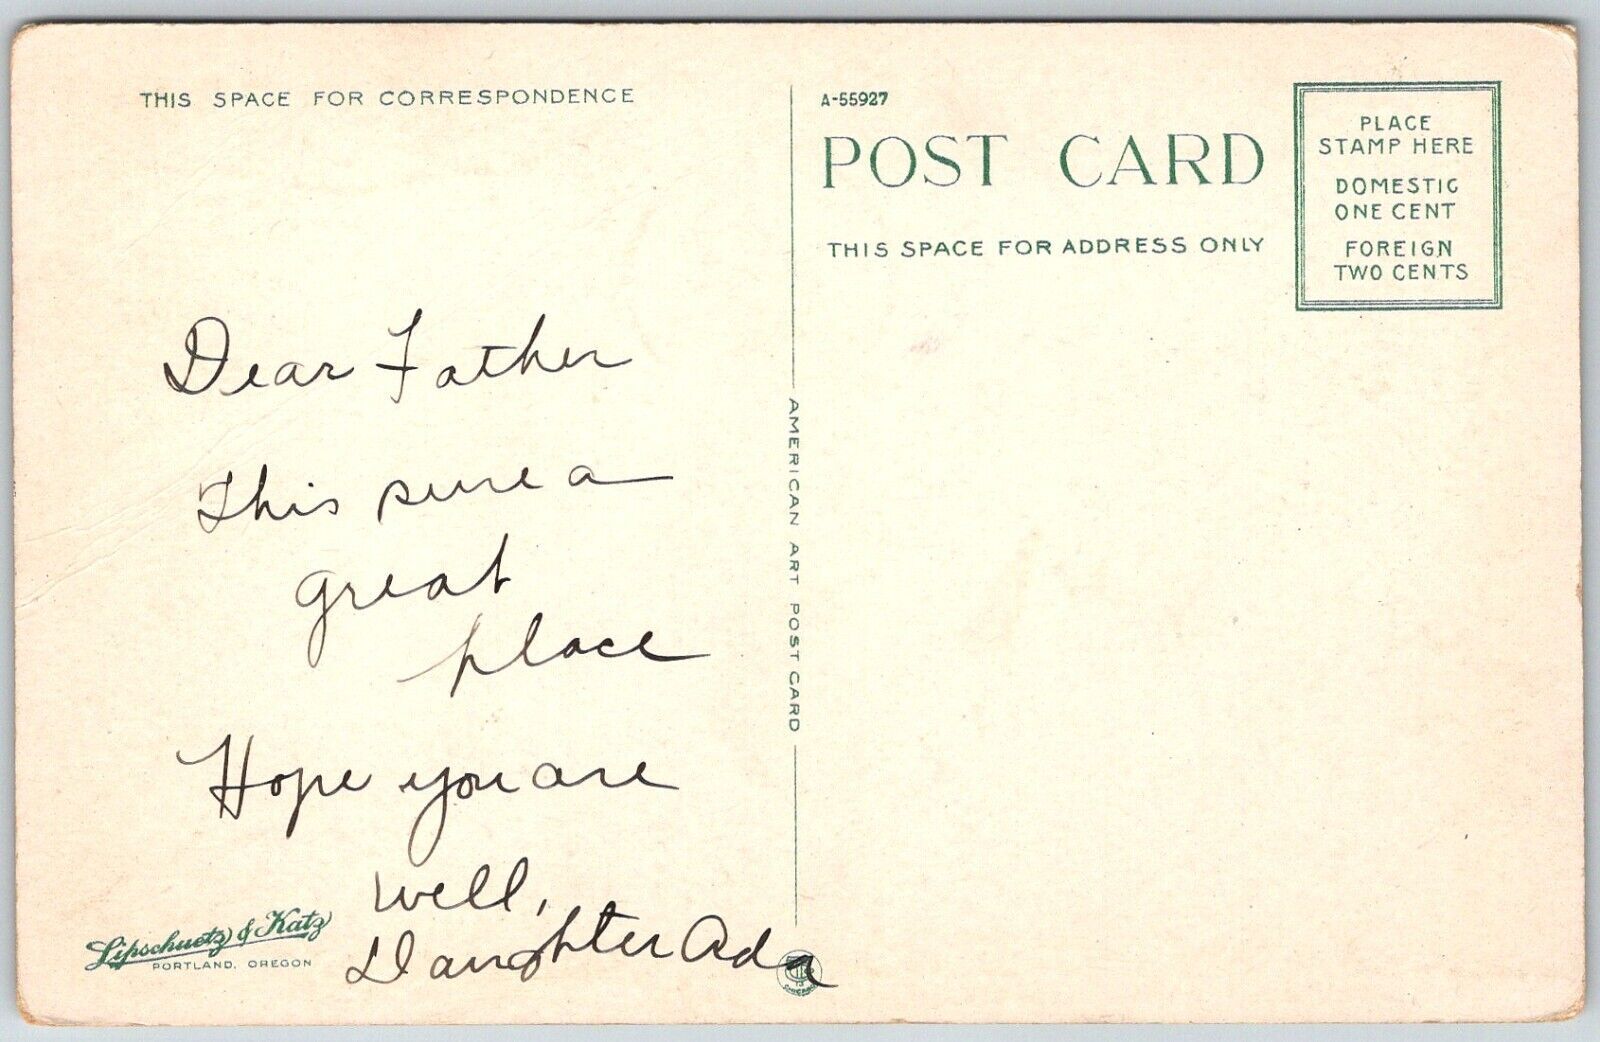 THIS SPACE FOR CORRESPONDENCE
Dear Father
This sure a
great
place
Hope you are
well,
Daughter Ada
Lipschuetz & Katz
PORTLAND, OREGON
AMERICAN ART POST CARD
A-55927
POST CARD
THIS SPACE FOR ADDRESS ONLY
PLACE
STAMP HERE
DOMESTIC
ONE CENT
FOREIGN
TWO CENTS
CHICAGO